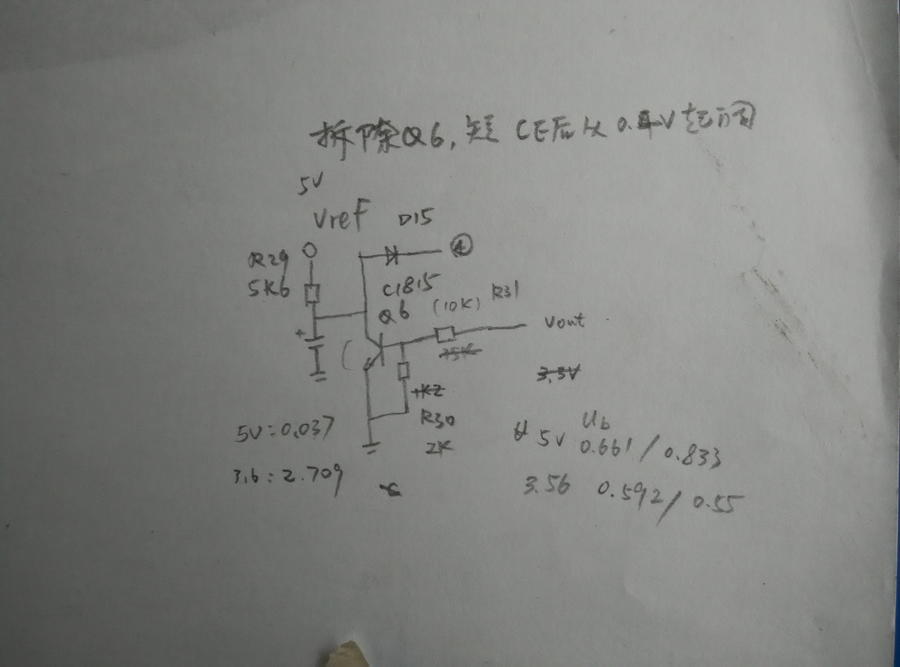 拆除Q6,短CE后从0.4V起调
5V
Vref D15
R29 4
5K6 C1815
Q6 (10K) R31
+ Vout
75K
3.5V
1K2
R30
2K
5V:0.037
3.6:2.709
Ub
5V 0.661/0.833
3.56 0.592/0.55